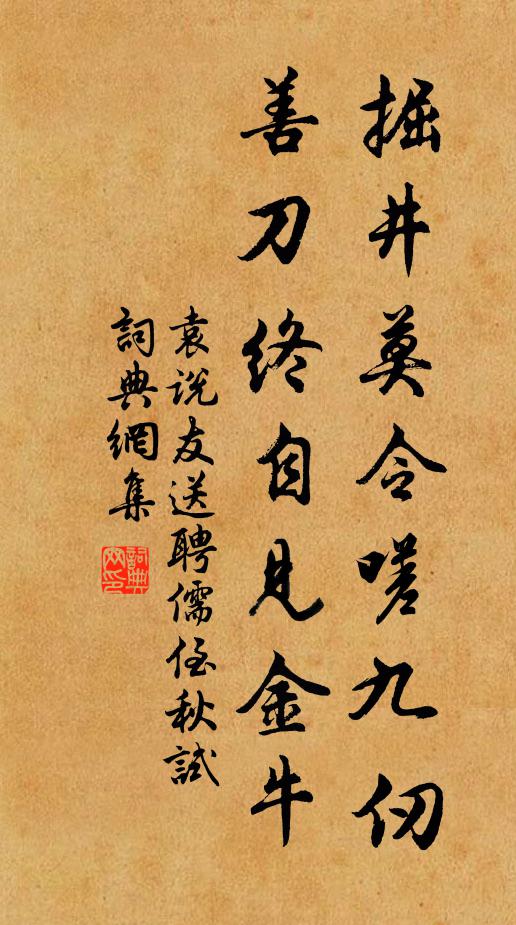 掘井莫令嗟九仞
善刀終自見金牛
袁说友送聘儒侄秋試
詞典網集
詞典网印